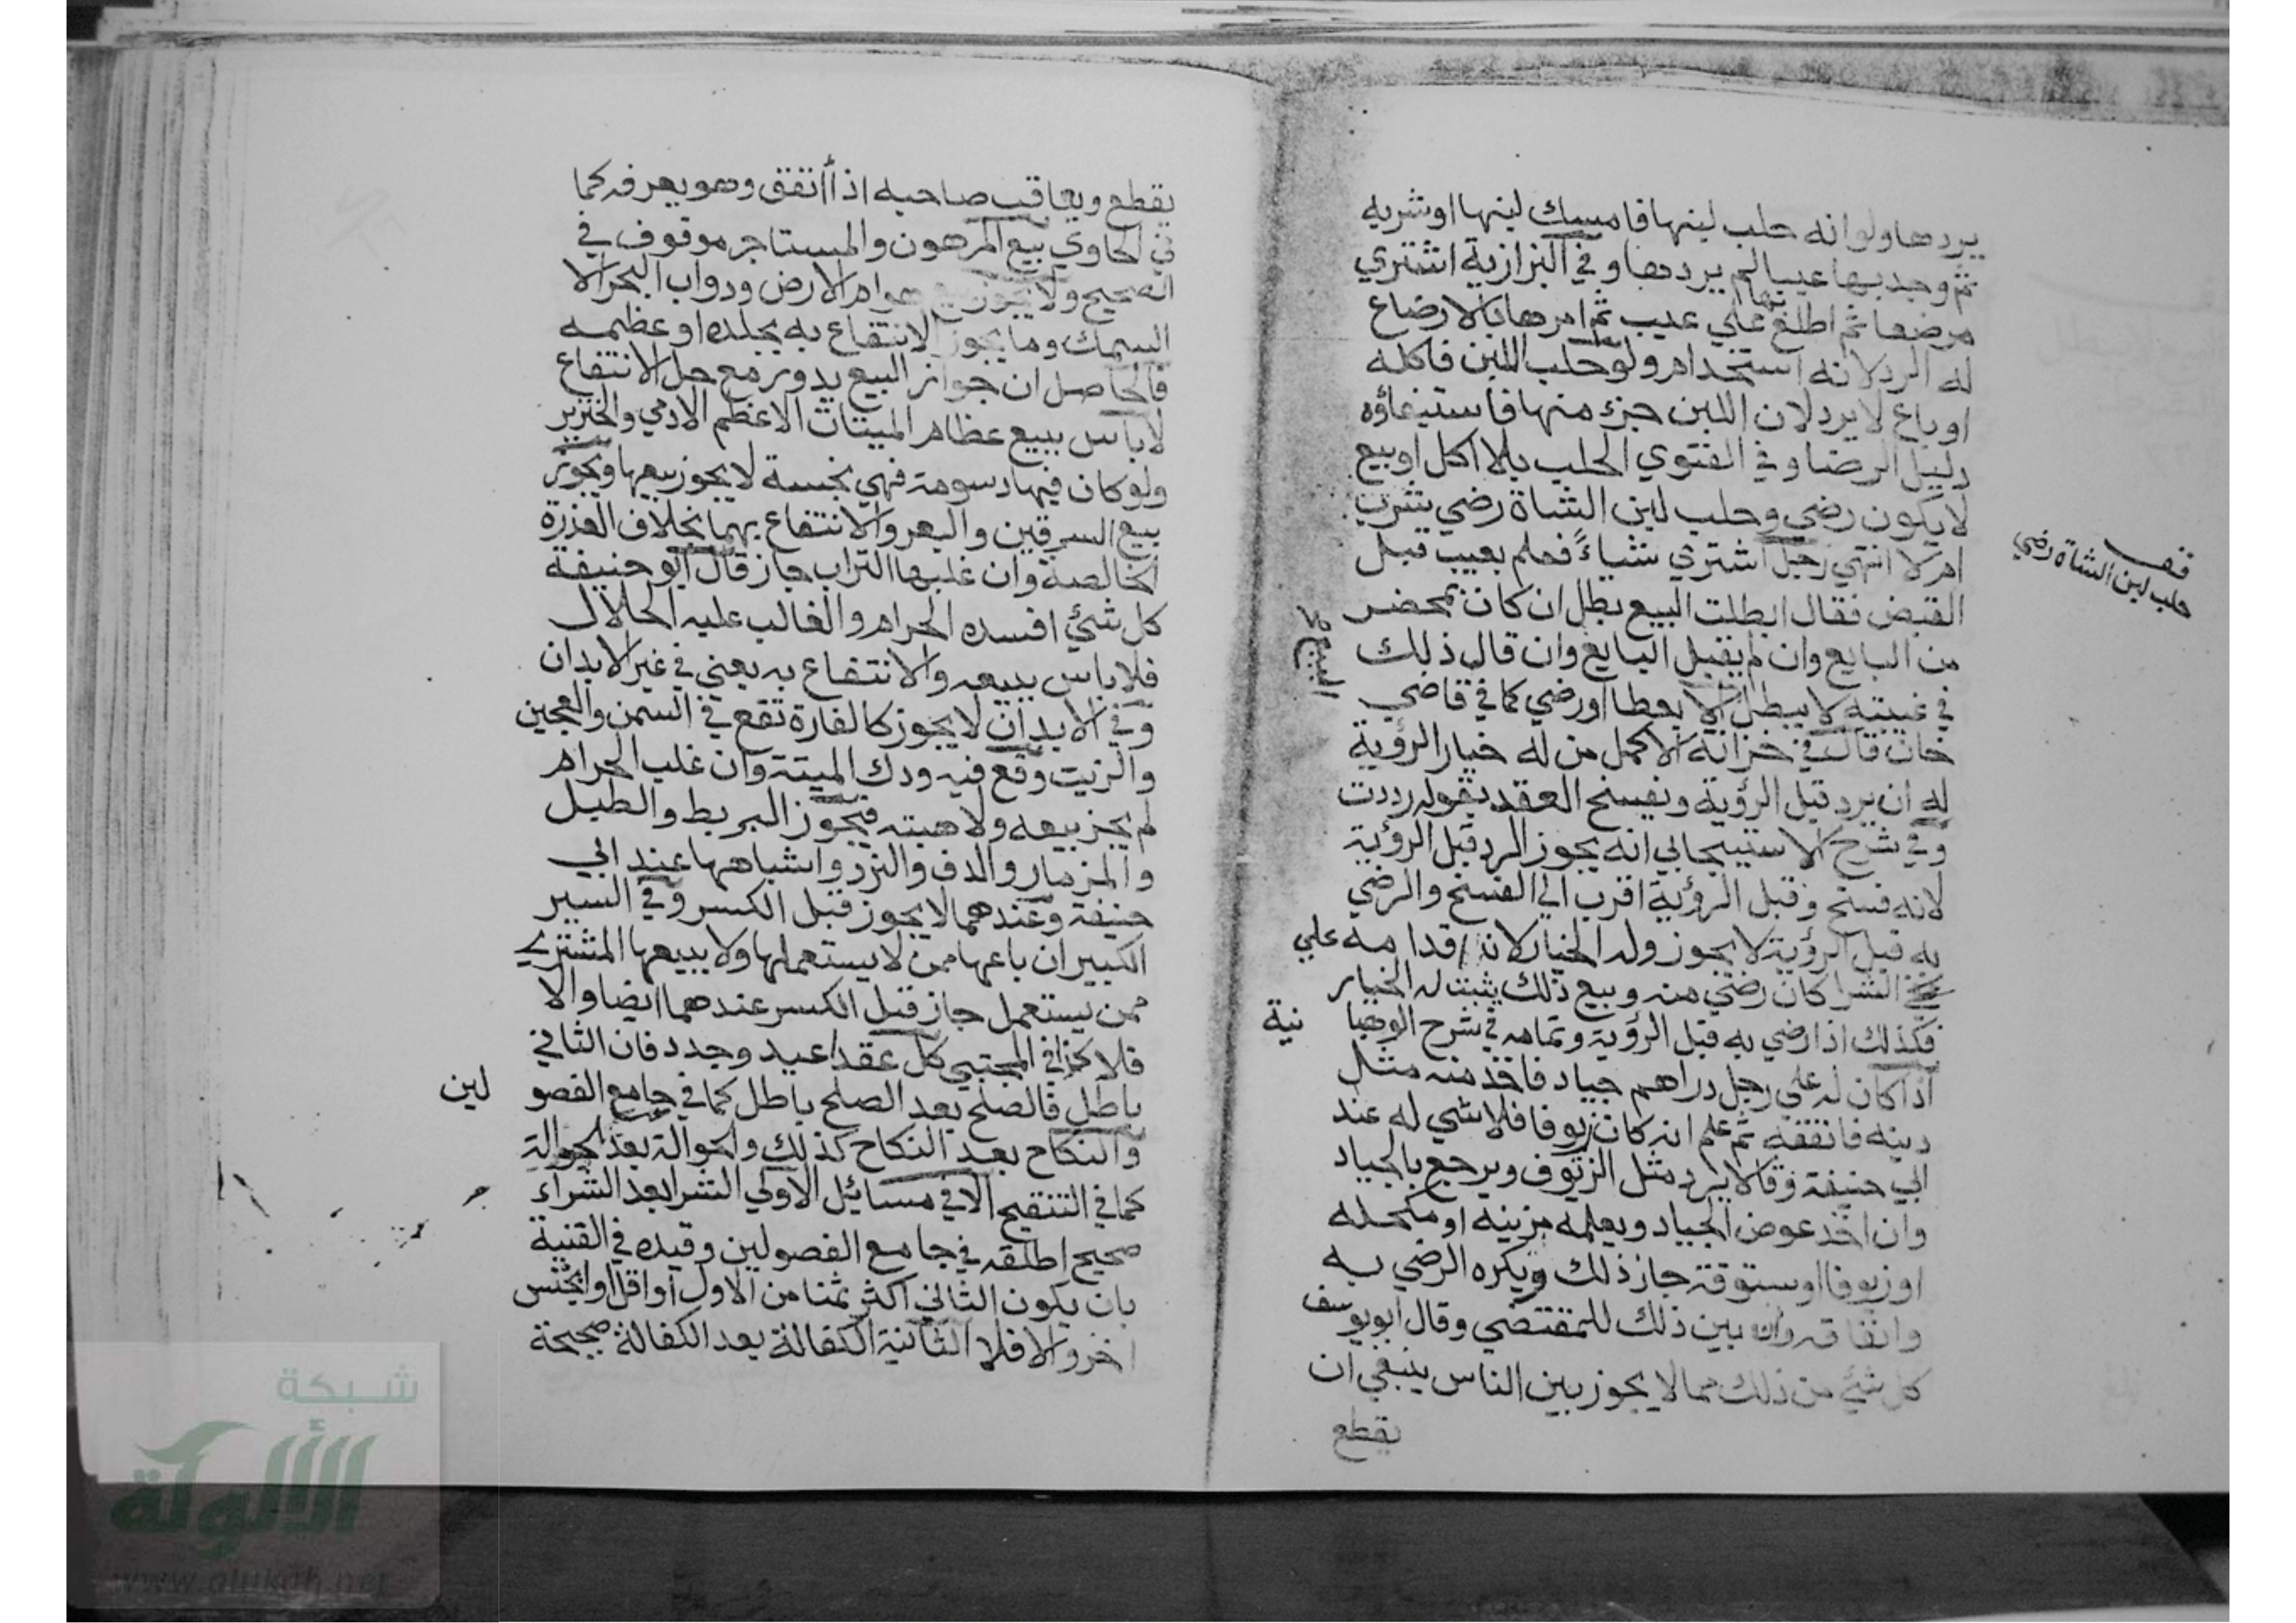 يردها ولو انه حلب لبنها فامسك لبنها او شربه
ثم وجد بها عيبا لم يردها وفي البزازية اشتري
مرضعا ثم اطلع بها علي عيب ثم امرها بالارضاع
له الرد لانه استخدام ولو حلب اللبن فاكله
او باع لا يرد لان اللبن جزء منها فاستيفاؤه
دليل الرضا وفي الفتوي الحلب بلا اكل او بيع
لا يكون رضي وحلب لبن الشاة رضي بشرب
ام لا انتهي رجل اشتري شياءً فعلم بعيب قبل
القبض فقال ابطلت البيع بطل ان كان بمحضر
من البايع وان لم يقبل البايع وان قال ذلك
في غيبته لا يبطل الا بعطا او رضي كما في قاضي
خان قال في خزانة الاكمل من له خيار الرؤية
له ان يرد قبل الرؤية ويفسخ العقد بقوله رددت
وفي شرح الاستيبجابي انه يجوز الرد قبل الرؤية
لانه فسخ وقبل الرؤية اقرب الي الفسخ والرضي
به قبل الرؤية لا يجوز وله الخيار لانه اقدامه علي
الشرا كان رضي منه وبيع ذلك يثبت له الخيار
فكذلك اذا رضي به قبل الرؤية وتمامه في شرح الوهبا نية
اذا كان له علي رجل دراهم جياد فاخذ منه مثل
دينه فانفقه ثم علم انه كان زيوفا فلا شي له عند
ابي حنيفة وقالا يرد مثل الزيوف ويرجع بالجياد
وان اخذ عوض الجياد وبعلمه مزينه او مكحله
او زيوفا او ستوقة جاز ذلك ويكره الرضي به
وانفاقه وان بين ذلك للمقتضي وقال ابويوسف
كل شئ من ذلك مما لا يجوز بين الناس ينبغي ان
يقطع
قف
حلب لبن الشاة رضي
البيع
يقطع ويعاقب صاحبه اذا أنفق وهو يعرفه كما
في الحاوي بيع المرهون والمستاجر موقوف في
الصحيح ولا يجوز بيع هوام الارض ودواب البحر الا
السمك وما يجوز الانتفاع به بجلده او عظمه
فالحاصل ان جواز البيع يدور مع حل الانتفاع
لا باس ببيع عظام الميتات الا عظم الادمي والخنزير
ولو كان فيها دسومة فهي نجسة لا يجوز بيعها ويجوز
بيع السرقين والبعر والانتفاع بهما بخلاف العذرة
الخالصة وان غلبها التراب جاز قال ابو حنيفة
كل شئ افسده الحرام والغالب عليه الحلال
فلا باس ببيعه والانتفاع به يعني في غير الابدان
وفي الابدان لا يجوز كالفارة تقع في السمن والعجين
والزيت وقع فيه ودك الميتة وان غلب الحرام
لم يجز بيعه ولا هبته فيجوز البربط والطبل
والمزمار والدف والنرد واشباهها عند ابي
حنيفة وعندهما لا يجوز قبل الكسر وفي السير
الكبير ان باعها ممن لا يستعملها ولا يبيعها المشتري
ممن يستعمل جاز قبل الكسر عندهما ايضا والا
فلا كذا في المجتبي كل عقد اعيد وجدد فان الثاني
باطل فالصلح بعد الصلح باطل كما في جامع الفصو لين
والنكاح بعد النكاح كذلك والحوالة بعد الحوالة
كما في التنقيح الا في مسائيل الاولي الشرا بعد الشراء
صحيح اطلقه في جامع الفصولين وقيده في القنية
بان يكون الثاني اكثر ثمنا من الاول او اقل او بجنس
اخر والا فلا الثانية الكفالة بعد الكفالة صحيحة
شبكة
الألوكة
www.alukah.net